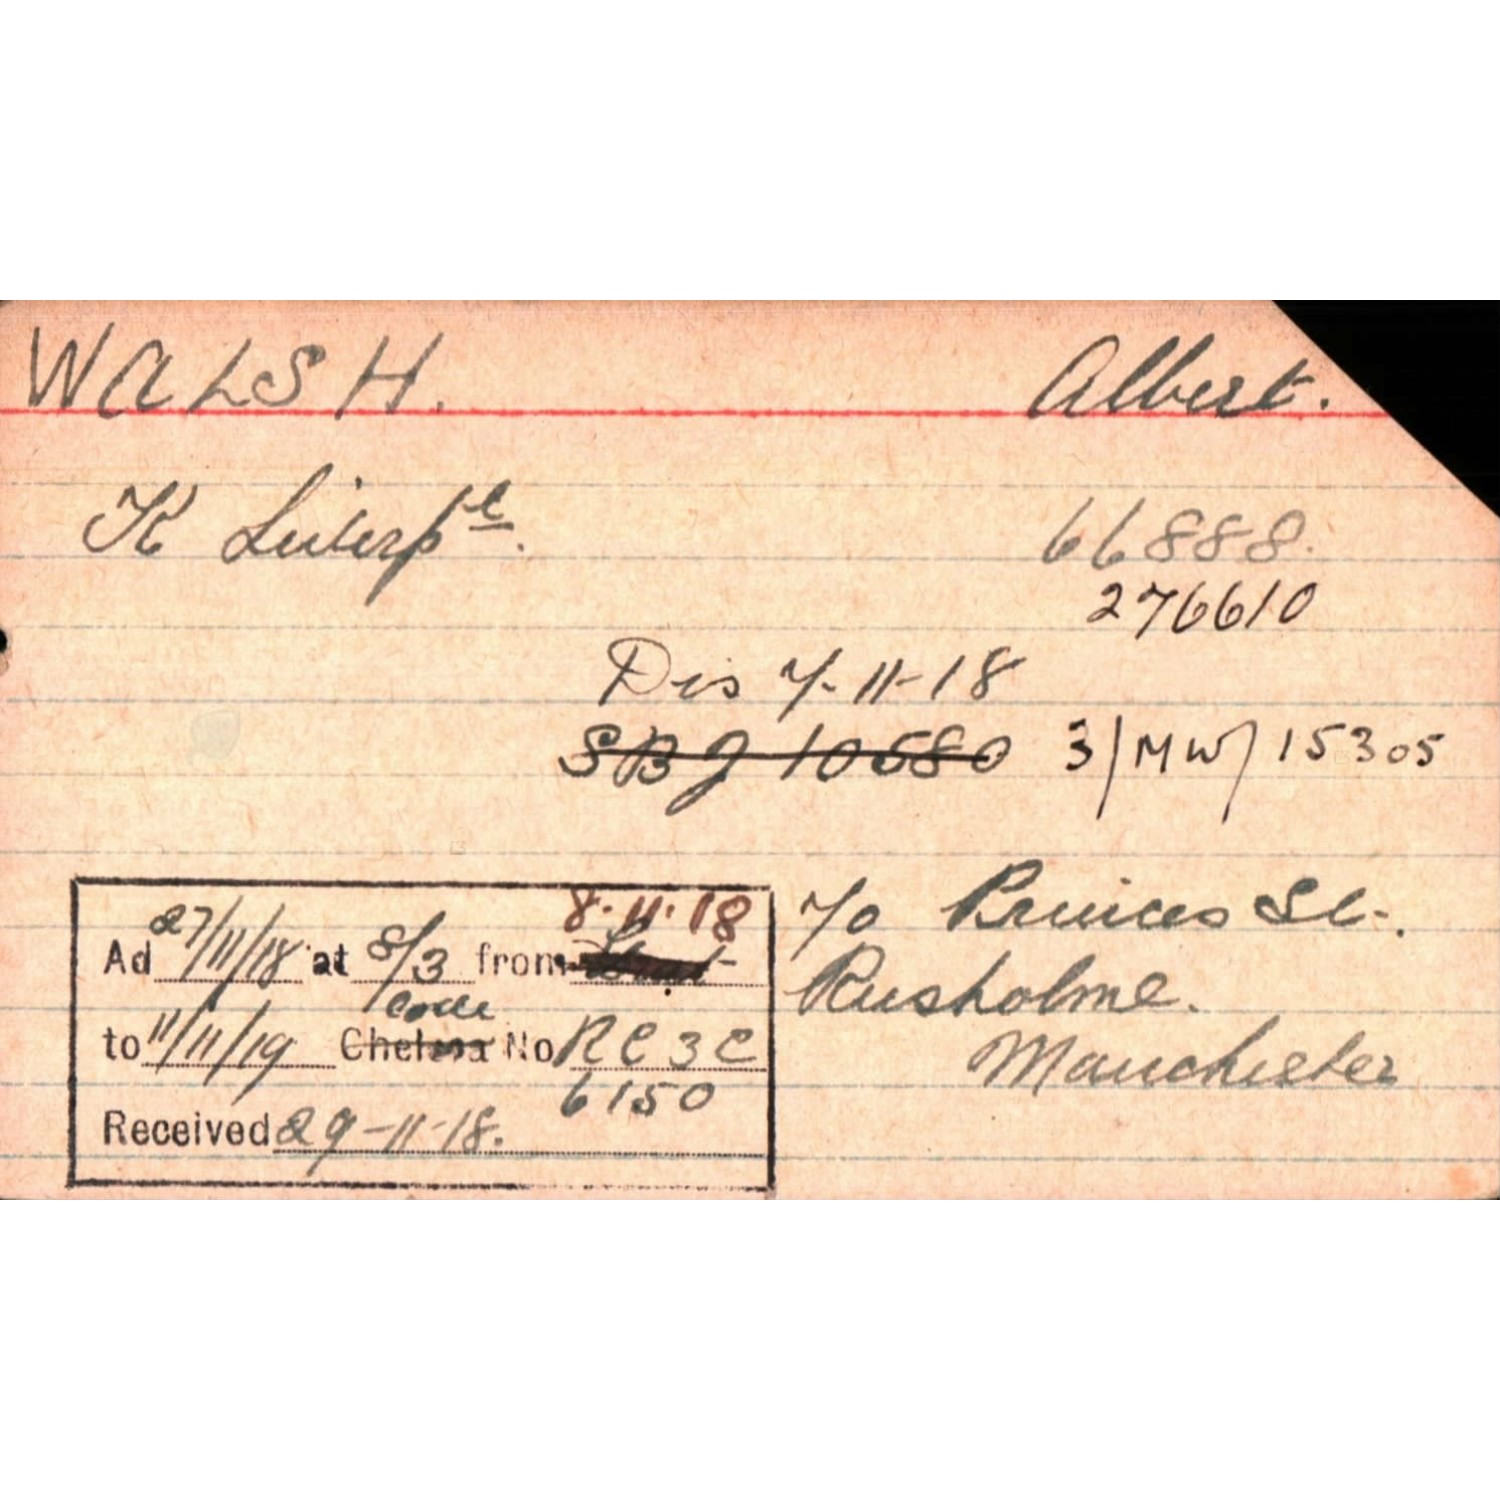 WALSH. Albert.
K Liverpl. 66888.
276610
Dis 7-11-18
SBJ 10580 3/MW/15305
8.11.18
Ad 27/11/18 at 8/3 from
Comm
to 11/11/19 Chelsea No RC3C
6150
Received 29-11-18.
70 Princes St.
Rusholme.
Manchester